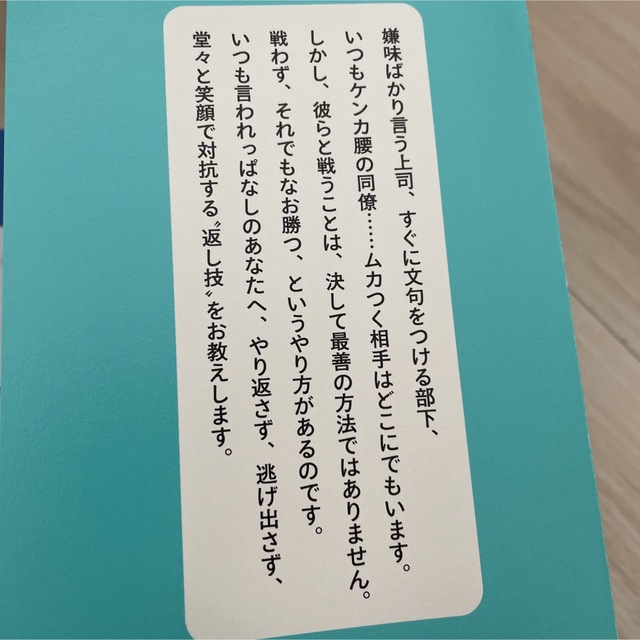 嫌味ばかり言う上司、すぐに文句をつける部下、
いつもケンカ腰の同僚……ムカつく相手はどこにでもいます。
しかし、彼らと戦うことは、決して最善の方法ではありません。
戦わず、それでもなお勝つ、というやり方があるのです。
いつも言われっぱなしのあなたへ、やり返さず、逃げ出さず、
堂々と笑顔で対抗する〝返し技〟をお教えします。